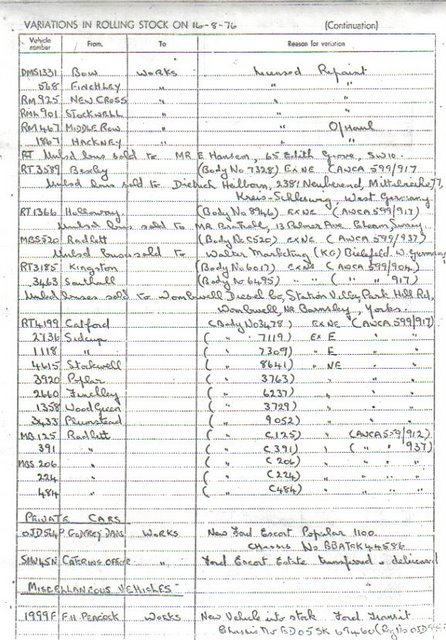 VARIATIONS IN ROLLING STOCK ON 16-8-76 (Continuation)
Vehicle number From. To Reason for variation
DMS1331 Bow WORKS Licensed Repaint
568 FINCHLEY " " "
RM 925 NEW CROSS " " "
RMA 901 STOCKWELL " " "
RM 467 MIDDLE ROW " " O/Haul
1867 HACKNEY " " "
RT Unlsd bus sold to MR E Hansen, 65 Edith Grove, SW10.
RT 3589 Bexley (Body No 7328) EX NE (AWCA 599/917
Unlsd bus sold to Dietrich Heilborn, 2381 Neuberend,
Kreis-Schleswig, West Germany
RT 1366 Holloway (Body No 8946) EX NE (AWCA 599/917)
Unlsd bus sold to MR 13 Palmer Ave, Surrey.
MBS 520 Radlett (Body No C520) EX NE (AWCA 599/937)
Unlsd bus sold to Walter Marketing (KG) Bielefeld. W. Germany
RT3185 Kingston (Body No 6017) EX NE (AWCA 599/904)
3463 Southall (Body No 6495) " " ( " " 917)
Unlsd buses sold to Wombwell Diesel Co, Station Valley Park Hill Rd,
Wombwell, NR Barnsley, Yorks.
RT 4199 Catford (Body No 3478) EX NE (AWCA 599/917)
2736 Sidcup ( " 7119) EX E " "
1118 " ( " 7309) " E " "
4615 Stockwell ( " 8641) " NE " "
3920 Poplar ( " 3763) " " "
2660 Finchley ( " 6237) " " "
1358 Wood Green ( " 3729) " " "
2433 Plumstead ( " 9052) " " "
MB 125 Radlett ( " C125) " " (AWCA 599/912)
391 " ( " C391) " ( " " 937)
MBS 206 " ( " C206) " " "
224 " ( " C224) " " "
484 " ( " C484) " " "
PRIVATE CARS
P. GODFREY DAVIS WORKS New Ford Escort Popular 1100
Chassis No BBATCK44586
CATERING OFFICE " Ford Escort Estate transferred & delicensed
MISCELLANEOUS VEHICLES
1999F F.H. PEACOCK WORKS New Vehicle into stock Ford Transit
Chassis No